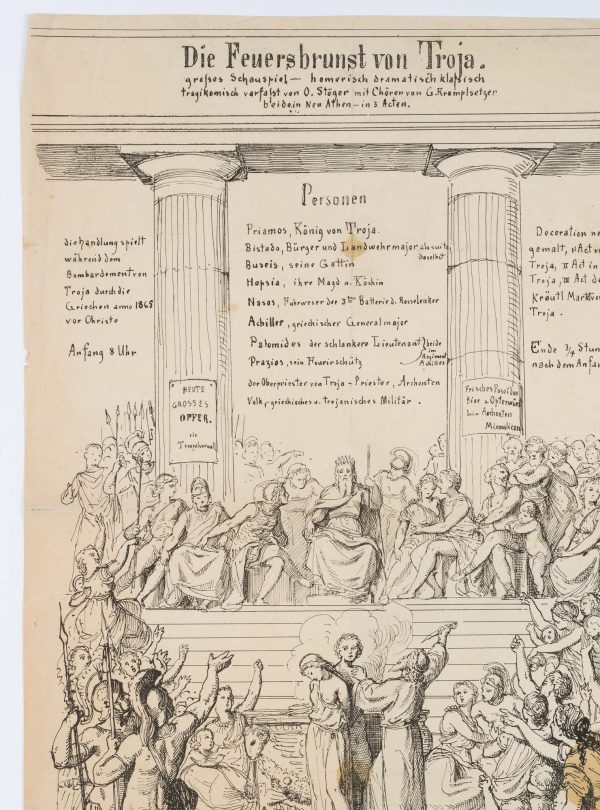 Die Feuersbrunst von Troja.
großes Schauspiel — homerisch dramatisch klaßisch
tragikomisch verfaßt von O. Stöger mit Chören von G. Krempelsetzer
beide in Neu Athen — in 3 Acten.
die Handlung spielt
während dem
Bombardement von
Troja durch die
Griechen anno 1865
vor Christo
Anfang 8 Uhr
Personen
Priamos, König von Troja.
Bistudo, Bürger und Landwehrmajor à la suite
daselbst
Buseis, seine Gattin
Hopsia, ihre Magd u. Köchin
Nasos, Fuhrweser der 3ten Batterie d. Rosselenker
Achilles, griechischer Generalmajor
Patomides der schlankere Lieutenant } beide
im
Regiment
Achilles
Praxios, sein Fourirschütz
der Oberpriester von Troja - Priester, Archonten
Volk, griechisches u. trojanisches Militär.
Decoration ne
gemalt, I Act v
Troja, II Act in
Troja, III Act de
Kräutl Markt v
Troja.
Ende 3/4 Stun
nach dem Anfa
HEUTE
GROSSES
OPFER.
Frisches
Bier
Archonten